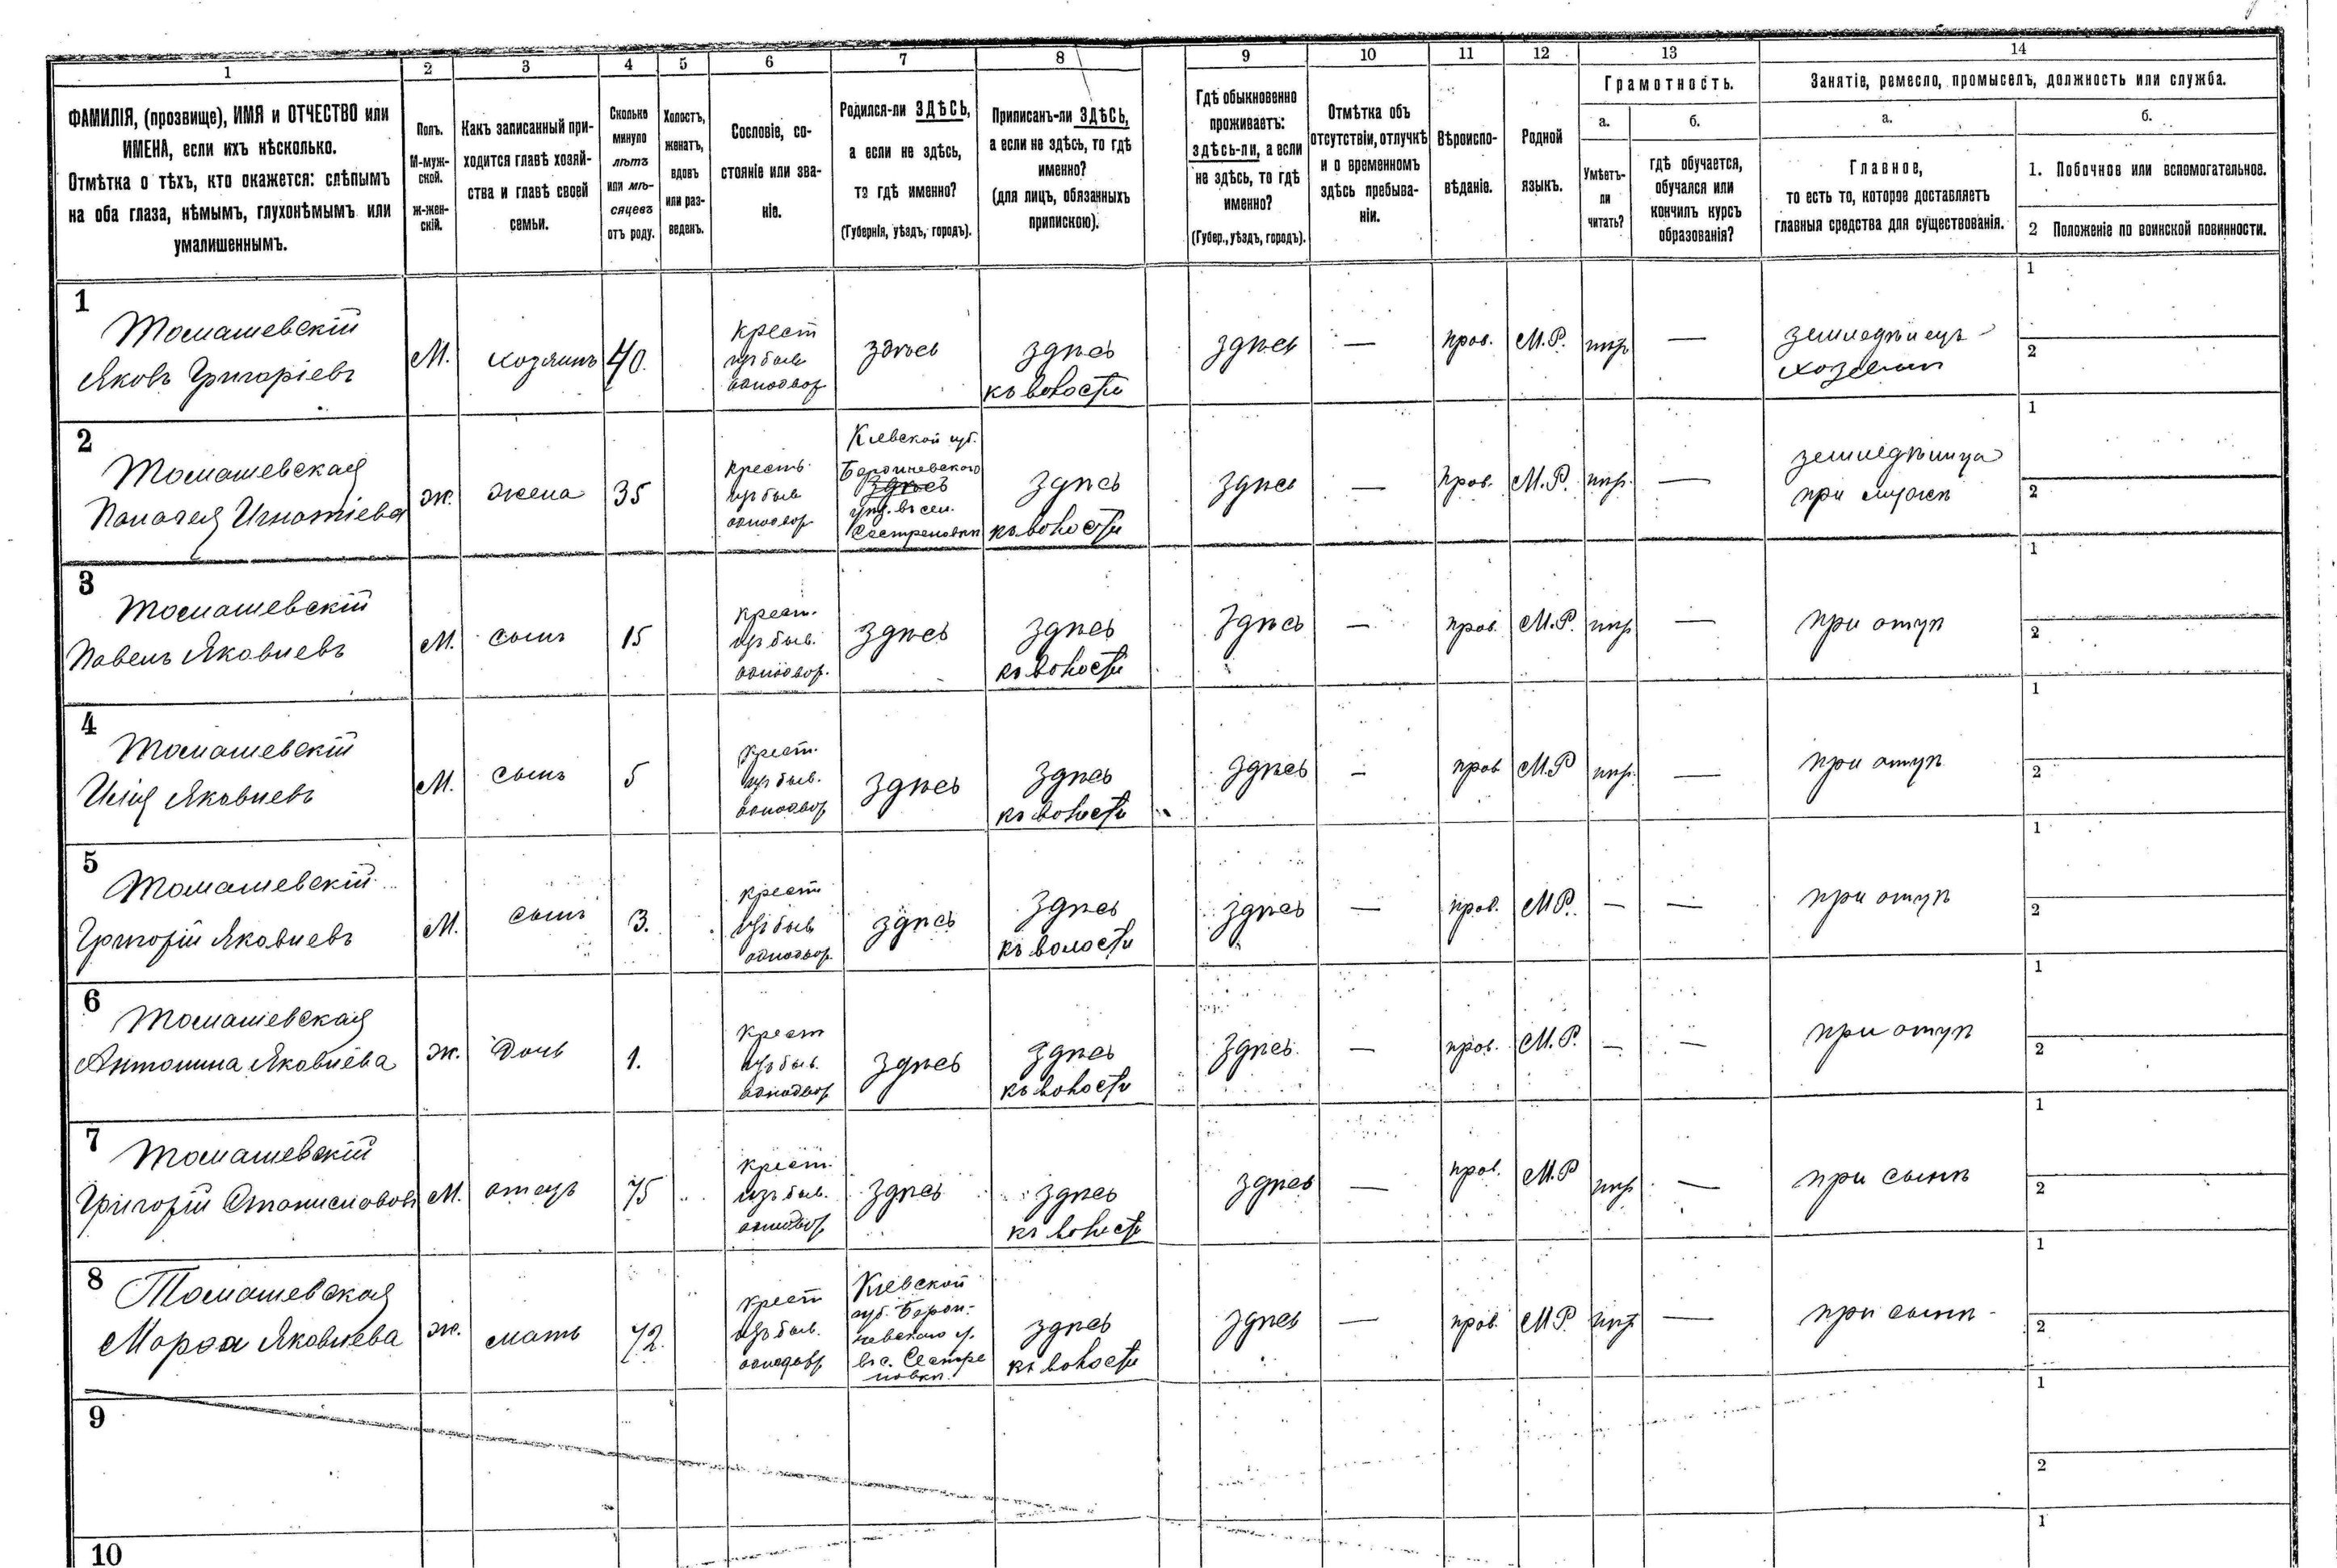 1 2 3 4 5 6 7 8 9 10 11 12 13 14
ФАМИЛІЯ, (прозвище), ИМЯ и ОТЧЕСТВО или
ИМЕНА, если ихъ нѣсколько.
Отмѣтка о тѣхъ, кто окажется: слѣпымъ
на оба глаза, нѣмымъ, глухонѣмымъ или
умалишеннымъ.
Полъ.
М-муж-
ской.
Ж-жен-
скій.
Какъ записанный при-
ходится главѣ хозяй-
ства и главѣ своей
семьи.
Сколько
минуло
лѣтъ
или мѣ-
сяцевъ
отъ роду.
Холостъ,
женатъ,
вдовъ
или раз-
веденъ.
Сословіе, со-
стояніе или зва-
ніе.
Родился-ли ЗДѢСЬ,
а если не здѣсь,
то гдѣ именно?
(Губернія, уѣздъ, городъ).
Приписанъ-ли ЗДѢСЬ,
а если не здѣсь, то гдѣ
именно?
(для лицъ, обязанныхъ
припискою).
Гдѣ обыкновенно
проживаетъ:
здѣсь-ли, а если
не здѣсь, то гдѣ
именно?
(Губер., уѣздъ, городъ).
Отмѣтка объ
отсутствіи, отлучкѣ
и о временномъ
здѣсь пребыва-
ніи.
Вѣроиспо-
вѣданіе.
Родной
языкъ.
Грамотность.
а.
Умѣетъ-
ли
читать?
б.
гдѣ обучается,
обучался или
кончилъ курсъ
образованія?
Занятіе, ремесло, промыселъ, должность или служба.
а.
Главное,
то есть то, которое доставляетъ
главныя средства для существованія.
б.
1. Побочное или вспомогательное.
2 Положеніе по воинской повинности.
1
Томашевскій
Яковъ Григоріевъ
М.
хозяинъ
40.
крест
изъ быв
однодвор.
здѣсь
здѣсь
къ волости
здѣсь
—
прав.
М.Р.
нѣтъ
—
земледѣлецъ
хозяин
1
2
2
Томашевская
Палагея Игнатіева
ж.
жена
35
крест.
изъ быв
однодвор.
Кіевской губ.
здѣсь
здѣсь
къ волости
здѣсь
—
прав.
М.Р.
нѣтъ.
—
земледѣлица
при мужѣ
1
2
3
Томашевскій
Павелъ Яковлевъ
М.
сынъ
15
крест.
изъ быв.
однодвор.
здѣсь
здѣсь
къ волости
здѣсь
—
прав.
М.Р.
нѣтъ
—
при отцѣ
1
2
4
Томашевскій
Илія Яковлевъ
М.
сынъ
5
крест.
изъ быв.
однодвор
здѣсь
здѣсь
къ волости
здѣсь
—
прав
М.Р
нѣтъ.
—
при отцѣ
1
2
5
Томашевскій
Григорій Яковлевъ
М.
сынъ
3.
крест
изъ быв
однодвор.
здѣсь
здѣсь
къ волости
здѣсь
—
прав.
М.Р.
—
—
при отцѣ
1
2
6
Томашевская
Антонина Яковлева
ж.
Дочь
1.
крест
изъ быв.
однодвор
здѣсь
здѣсь
къ волости
здѣсь.
—
прав.
М.Р.
—
—
при отцѣ
1
2
7
Томашевскій
Григорій Станиславовъ
М.
отецъ
75
крест.
изъ быв.
однодвор
здѣсь
здѣсь
къ волости
здѣсь
—
прав.
М.Р
нѣтъ
—
при сынѣ
1
2
8
Томашевская
Марфа Яковлева
ж.
мать
72.
крест
изъ быв.
однодвор
Кіевской
губ.
здѣсь
къ волости
здѣсь
—
прав.
М.Р.
нѣтъ
—
при сынѣ
1
2
9
1
2
10
1